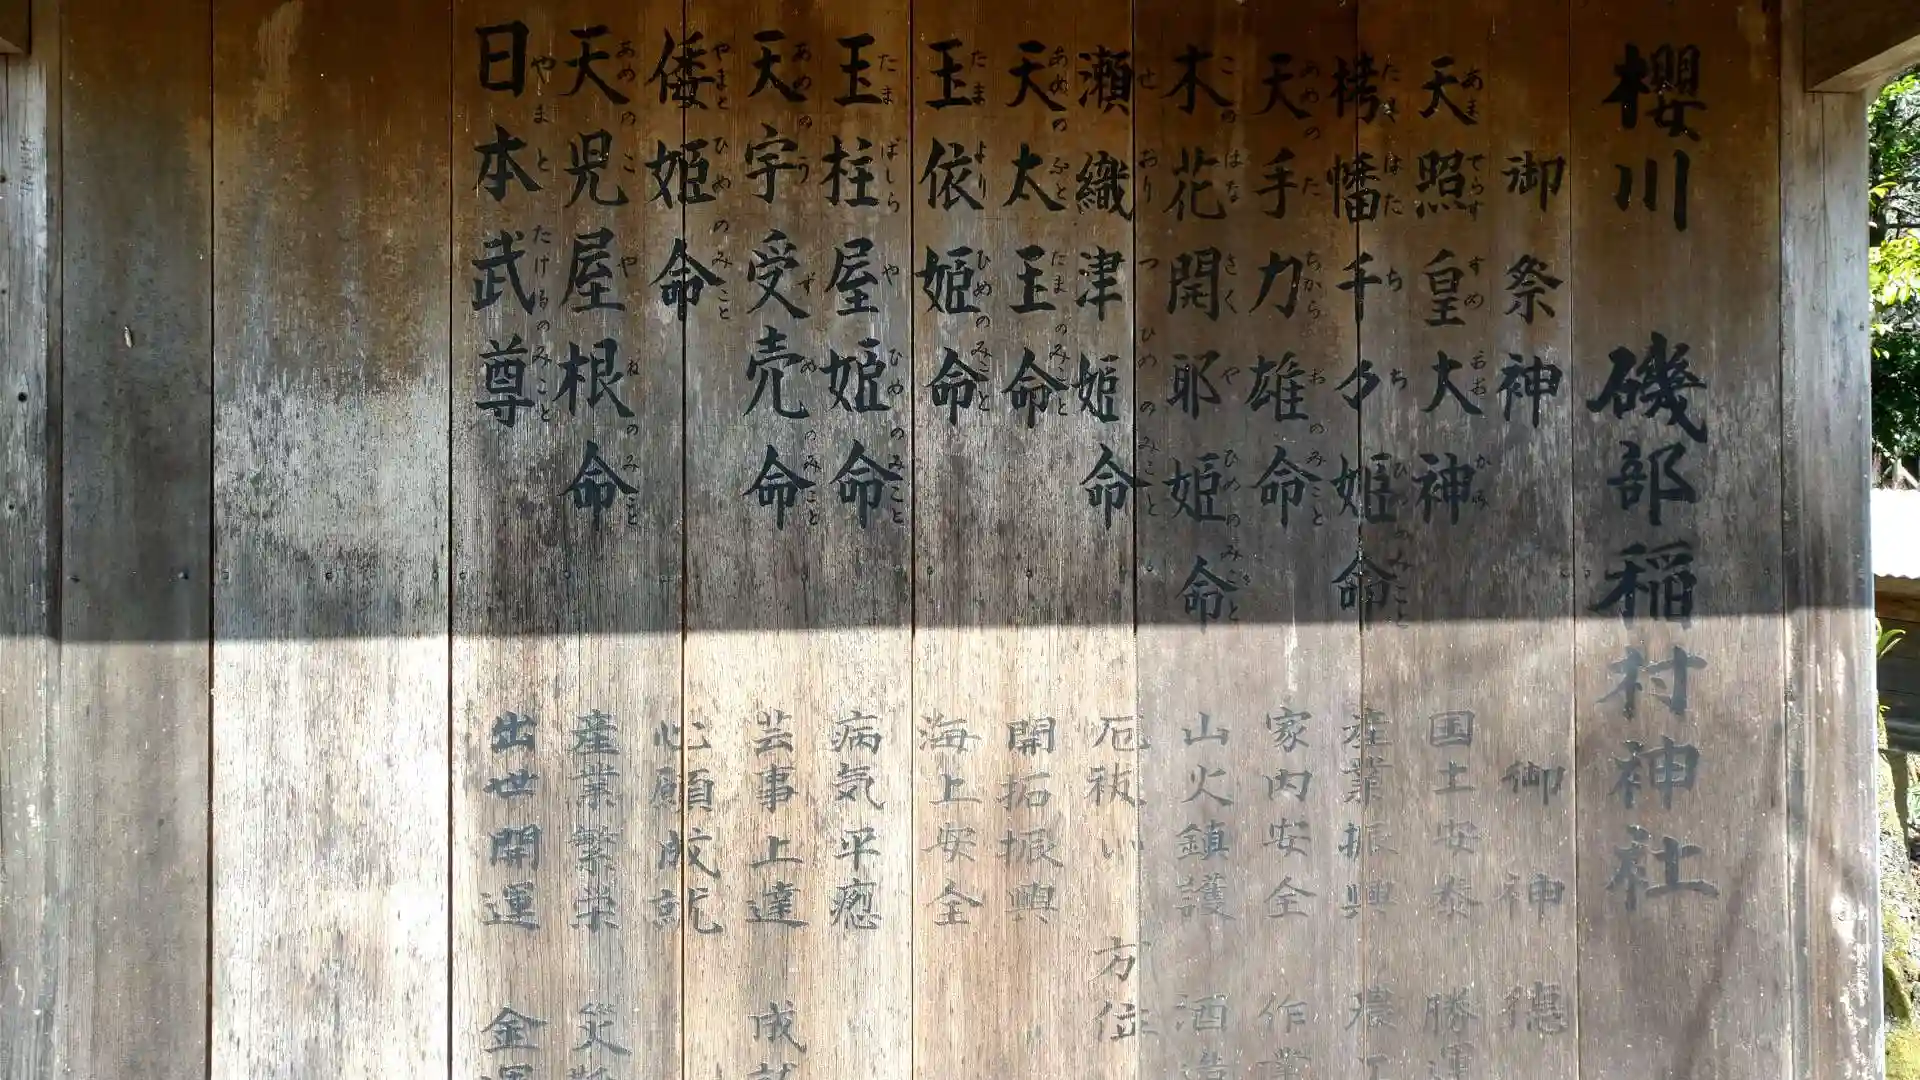 櫻川 磯部稲村神社
御祭神 御神徳
天照皇大神 国土安泰 勝運
栲幡千々姫命 産業振興 農
天手力雄命 家内安全 作業
木花開耶姫命 山火鎮護 酒造
瀬織津姫命 厄祓い 方位
天太玉命 開拓振興
玉依姫命 海上安全
玉柱屋姫命 病気平癒
天宇受売命 芸事上達 成就
倭姫命 心願成就
天児屋根命 産業繁栄 災
日本武尊 出世開運 金運